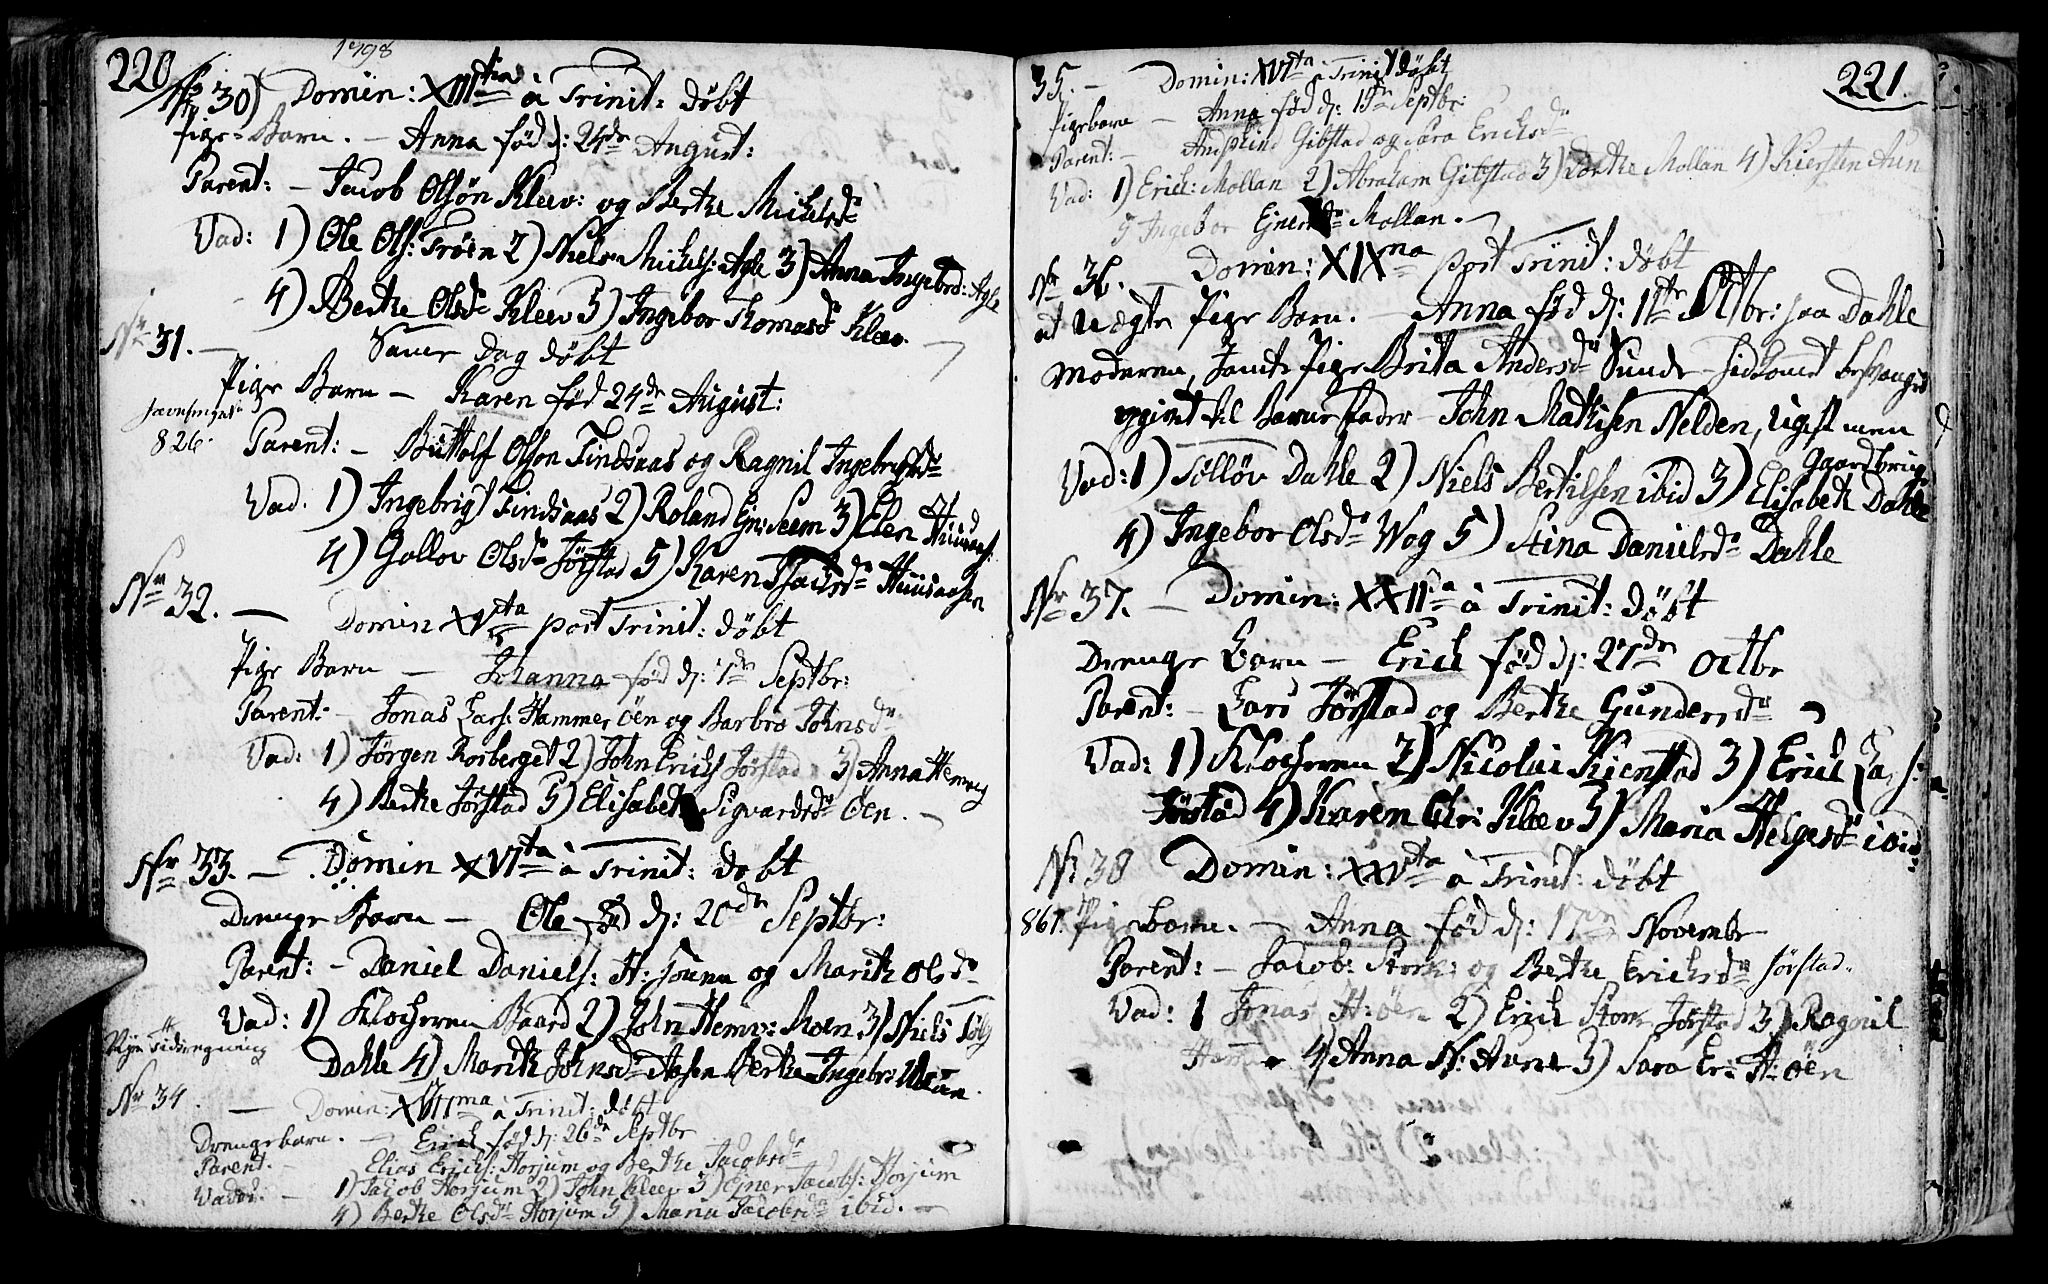 220
1798
No 30) Domin: XIIItia à Trinit: døbt
Pige-Barn. – Anna fød d: 24de August:
Parent: – Jacob Olsøn Kleev: og Berthe Michelsdr
Vad: 1) Ole Ols: Trøen 2) Niels Michels: Agle 3) Anna Ingebrd: Agle
4) Berthe Olsdr Kleev 5) Ingebor Thomasdr Kleev.
Nr 31. – Dag døbt
Pige Barn – Karen fød 24de August:
826.
Parent: – Buttolf Olson Findsaas og Ragnil Ingebrigtsdr
Vad. 1) Ingebrigt Findsaas 2) Roland Gr: Seem 3) Elen
4) Gollov Olsdr Jørstad 5) Karen
Nr 32. – Domin XVta post Trinit: døbt
Pige Barn – Johanna fød d: 7de Septbr:
Parent: – Jonas Lars: Hammer Øen og Barbro Johnsdr
Vad: 1) Jørgen Rosberget 2) John Erichs Jørstad 3) Anna
4) Berthe Jørstad 5) Elisabeth Sigvardsdr Øen. –
Nr 33. – Domin XVIta à Trinit: døbt
Drenge Barn – Ole fød d: 20de Septbr:
Parent: – Daniel Daniels: og Marith Olsdr
Vad: 1) Klocheren Baard 2) John Hemv: Moen 3) Niels
Dahle 4) Marith Johnsdr Aasen Berthe Ingebr:
Nye Tidsregning
Nr 34. – Domin: XVIIma à Trinit: døbt
Drengebarn. – Erich fød d: 26de Septbr
Parent. – Elias Erichs: Horjum og Berthe Jacobsdr
Vad: – 1) Jacob Horjum 2) John Kleev 3) Ejner Jacobs: Horjum
4) Berthe Olsdr Horjum 5) Maria Jacobsdr ibid. –
221.
35. – Domin: XVIIta à Trinit døbt
Pigebarn – Anna fød d: Septbr:
Parent: – Gibstad og Sara Erichsdr
Vad: 1) Erich: Mollan 2) Abraham Gibstad 3) Berthe Mollan 4) Kiersten Aun
5 Ingebor Mollan. –
Nr 36. – Domin: XIXna post Trinit: døbt
et Uægte Pige Barn. – Anna fød d: 11te Octbr: paa Dahle
Moderen, Pige Brita Andersdr Sunde
til Barnefader – John Mathisen Nelden, Ugift men
Gaardbrug
Vad: 1) Tølløv Dahle 2) Niels Bertilsen ibid 3) Elisabeth Dahle
4) Ingebor Olsdr Wog 5) Stina Danielsdr Dahle
Nr 37. – Domin: XXIIda à Trinit: døbt
Drenge Barn – Erich fød d: 27de Octbr
Parent: – Lars Jørstad og Berthe Gundersdr
Vad: 1) Klocheren 2) Nicolai Kienstad 3) Erich Lars:
Jørstad 4) Karen Chr: Kleev 5) Maria Helgesdr ibid
Nr 38 Domin: XXVta à Trinit: døbt
867. Pige barn. – Anna fød d: 17de Novembr
Parent: – Jacob: Stor: og Berthe Erichsdr Jørstad.
Vad: 1 Jonas H: Øen 2) Erich Jørstad 3) Ragnil
4) Anna N: Aune 5) Sara Er: H: Øen